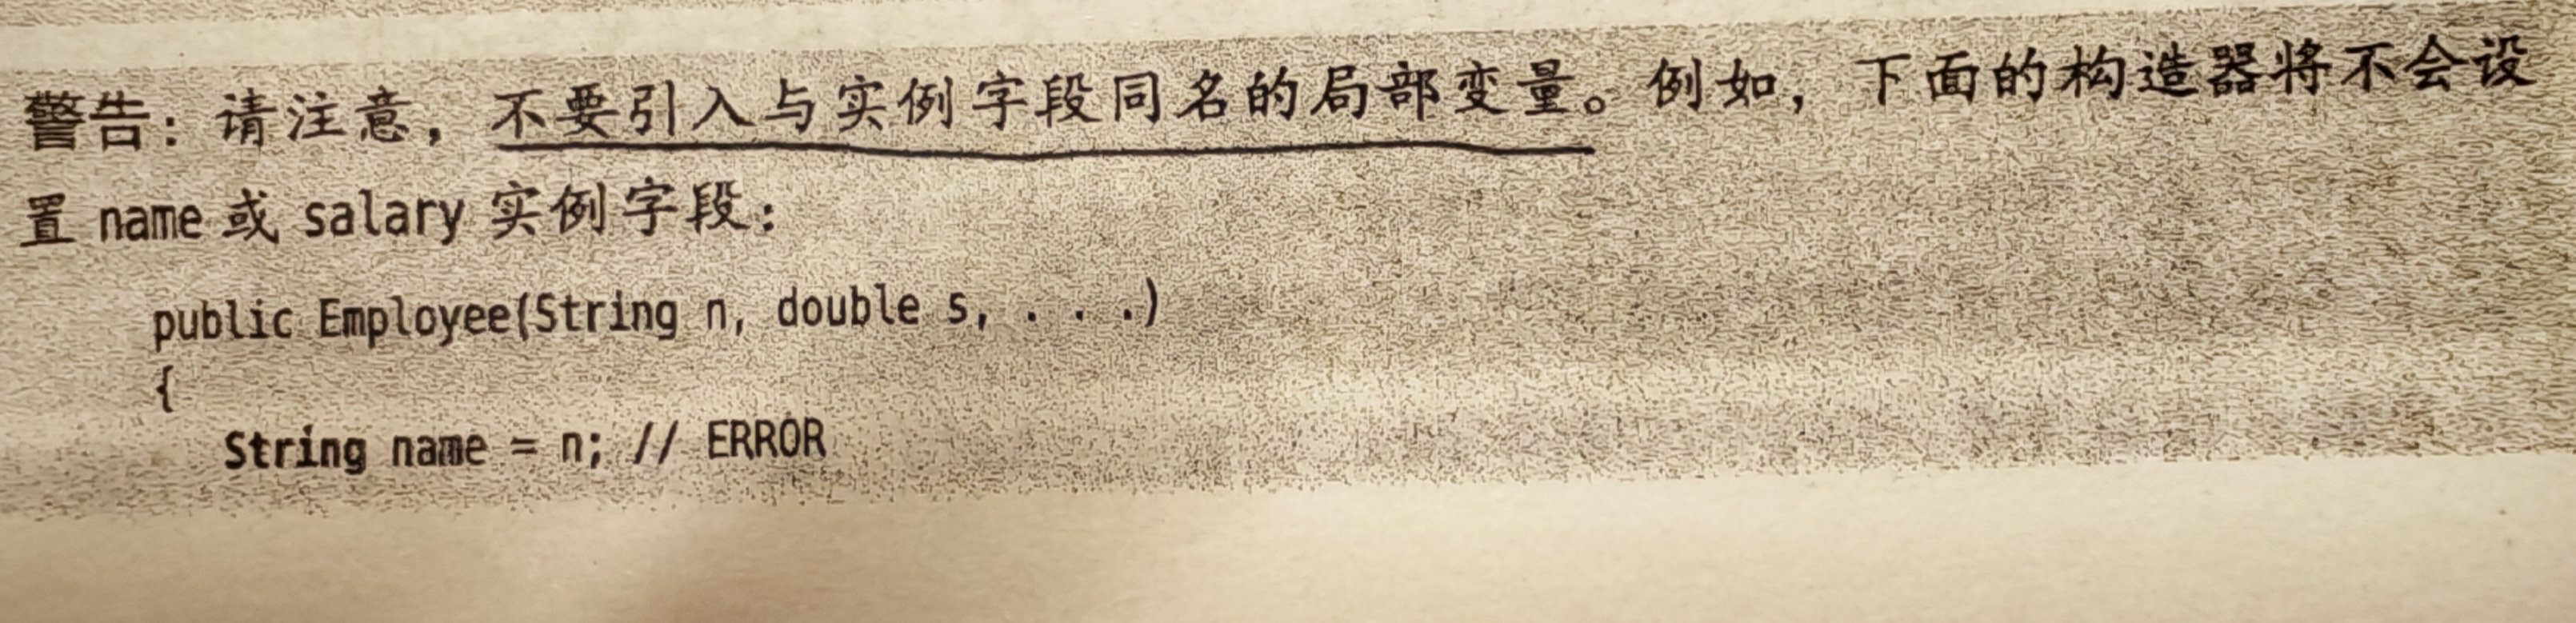 警告：请注意，不要引入与实例字段同名的局部变量。例如，下面的构造器将不会设
置 name 或 salary 实例字段：
public Employee(String n, double s, . . .)
{
String name = n; // ERROR